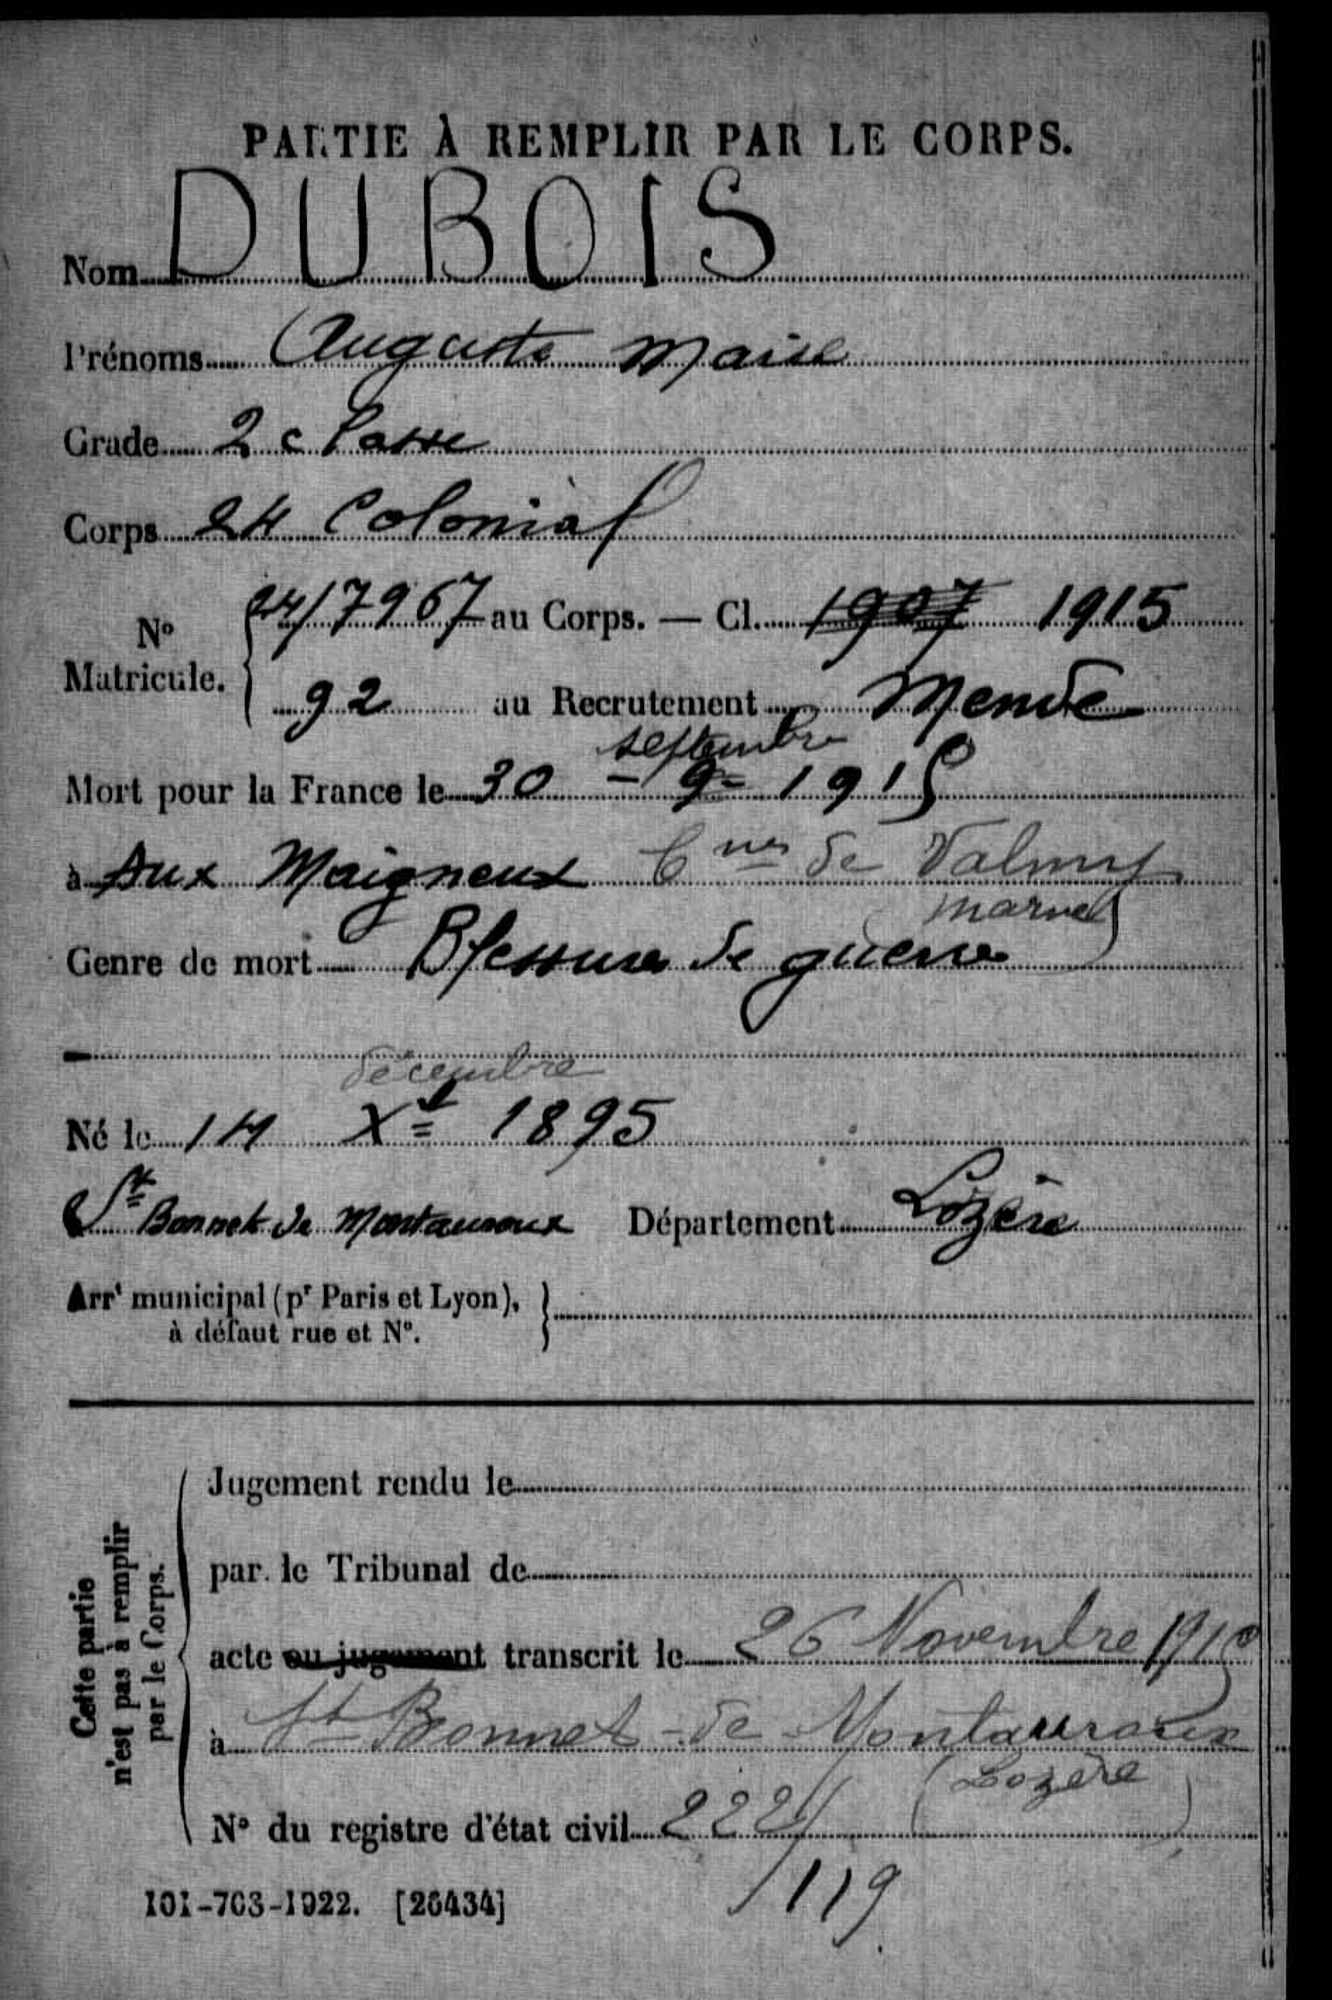 PARTIE À REMPLIR PAR LE CORPS.
Nom DUBOIS
Prénoms Auguste Marie
Grade 2 classe
Corps 24 Colonial
N° Matricule. 24/7967 au Corps. — Cl. 1907 1915
92 au Recrutement Mende
septembre
Mort pour la France le 30 - 9 - 1915
à Aux Maigneux Cnes de Valmy
Marne)
Genre de mort Blessures de guerre
décembre
Né le 14 Xbre 1895
à St Bonnet de Montauroux Département Lozère
Arrt municipal (pr Paris et Lyon),
à défaut rue et N°.
Cette partie
n'est pas à remplir
par le Corps.
Jugement rendu le
par le Tribunal de
acte ou jugement transcrit le 26 Novembre 1915
à St Bonnet - de - Montauroux
(Lozère)
N° du registre d'état civil 222/
/119
101-703-1922. [26434]